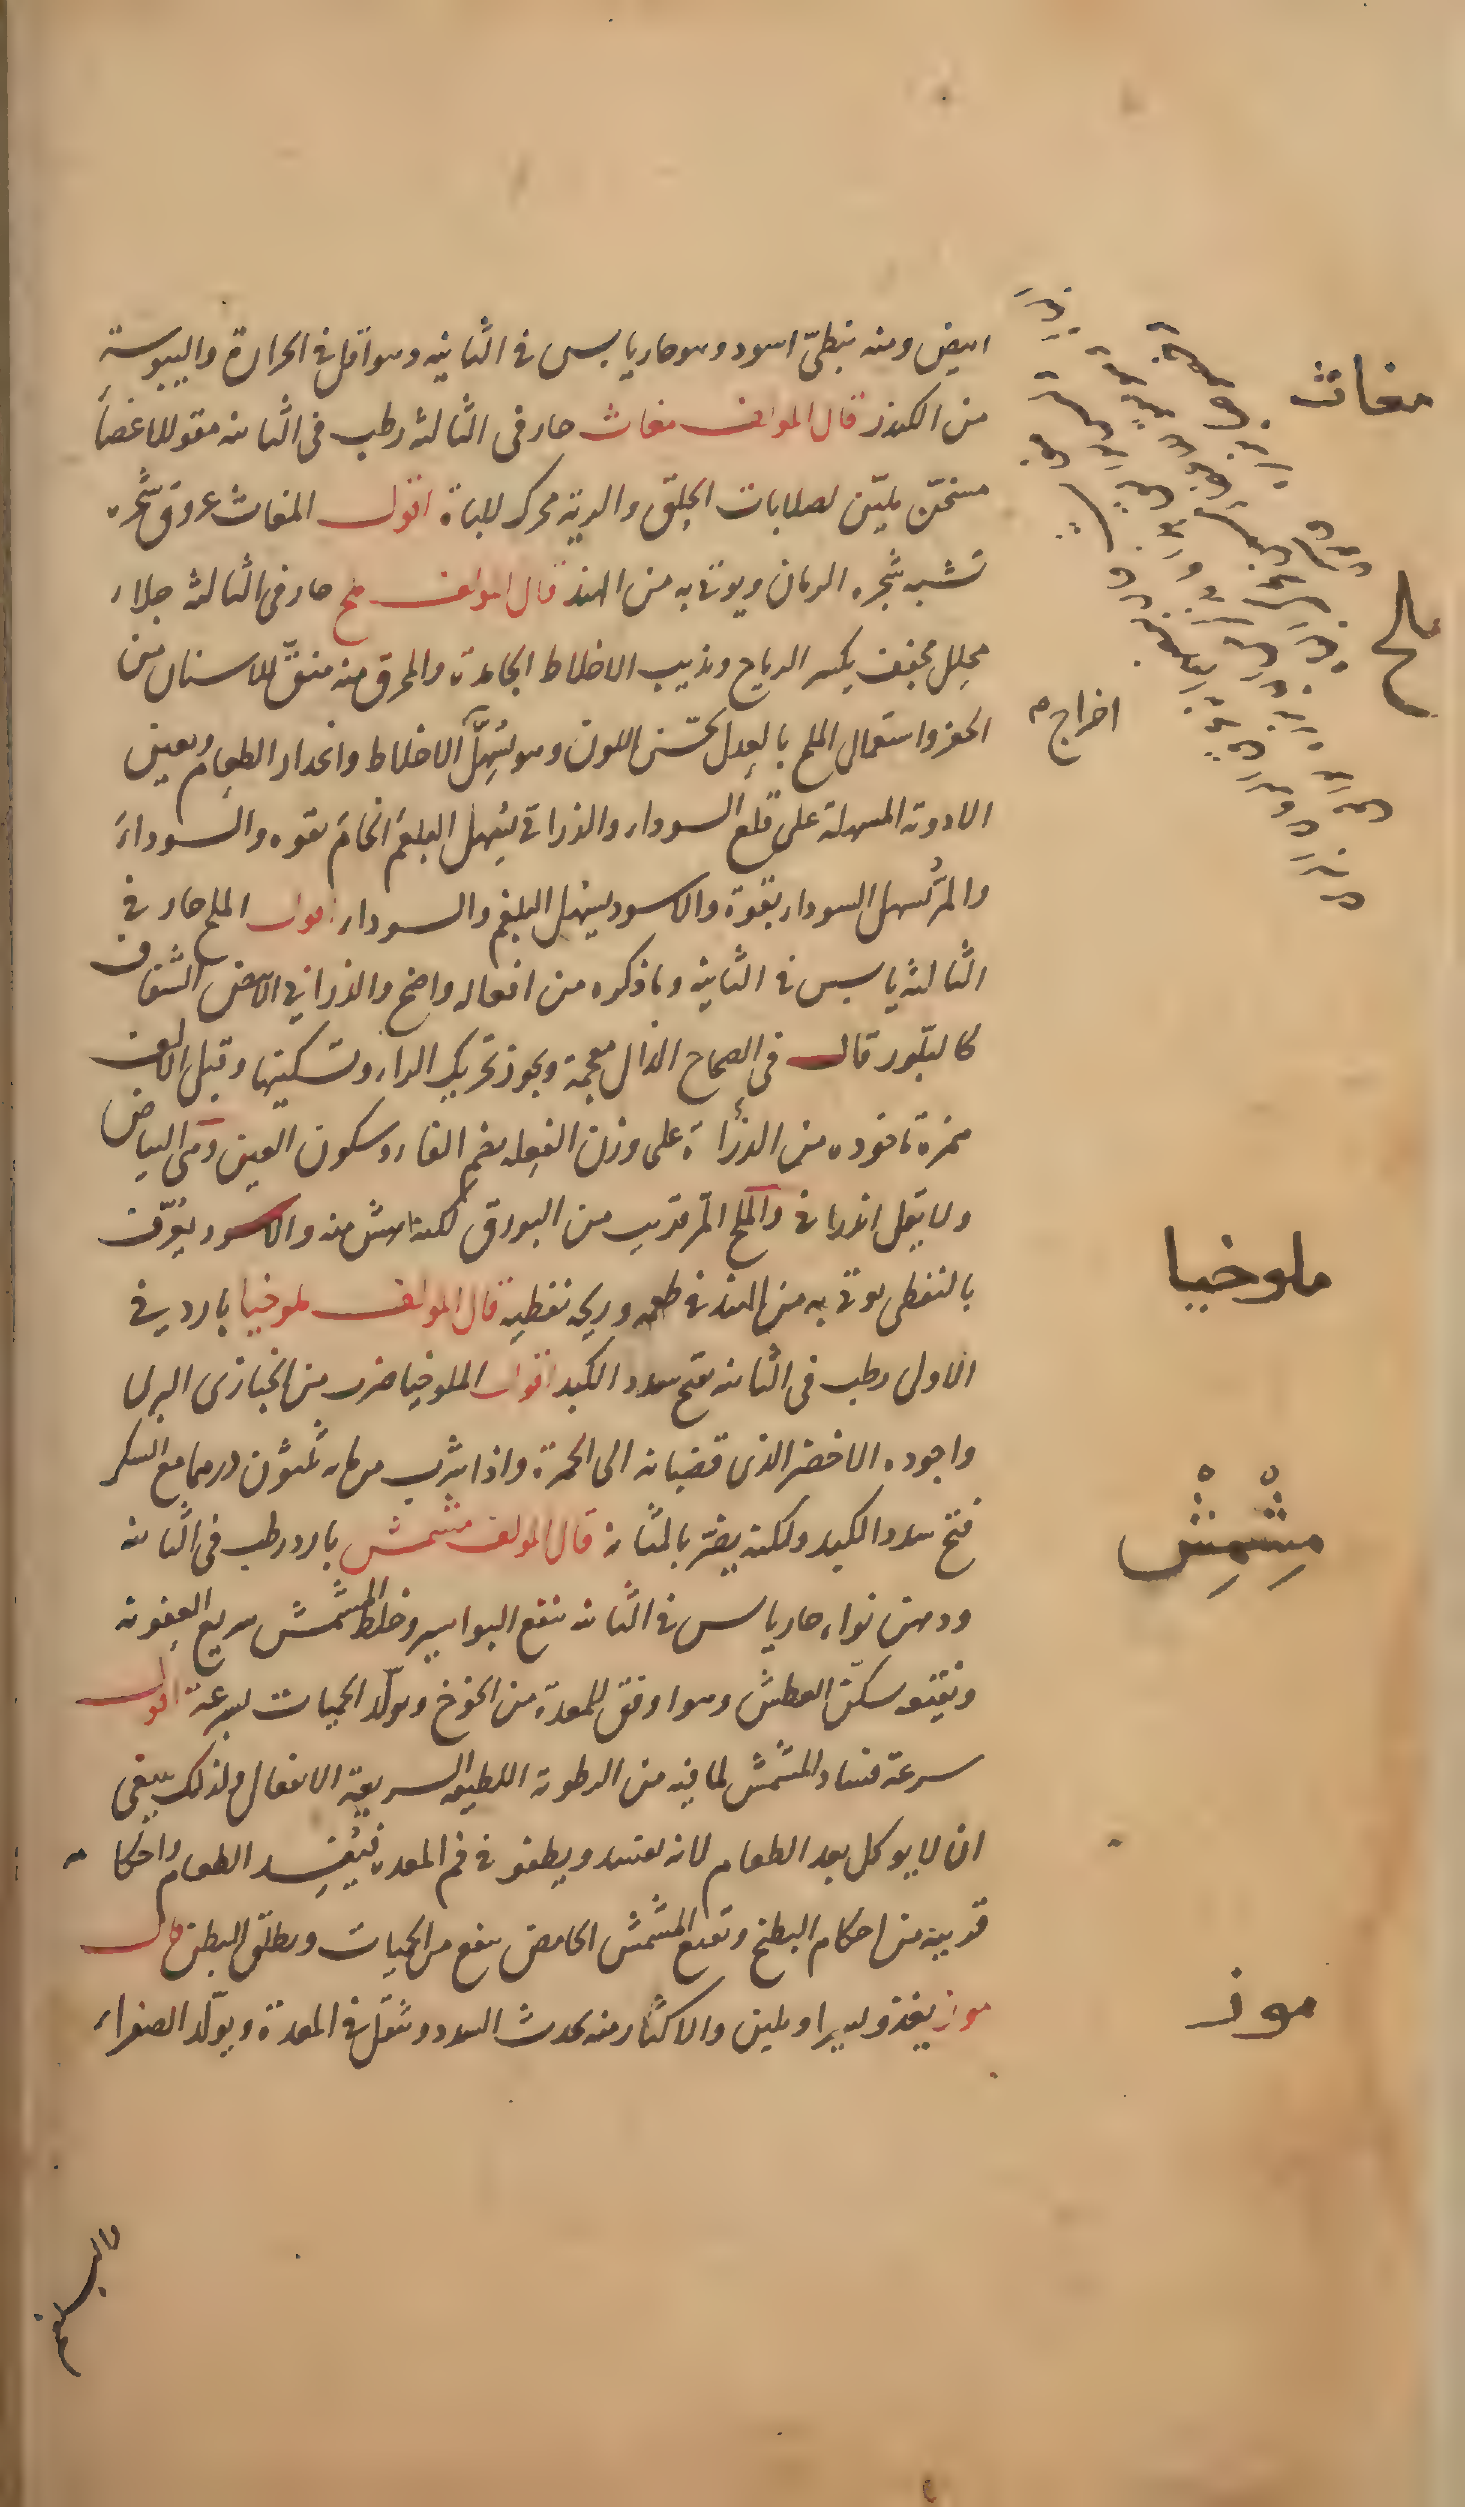 ابيض ومنه نبطىّ اسود وهو حار يابس فى الثانيه وهو اقل فى الحرارة واليبوسة
من الكندر قال المولف مغاث حار فى الثالثه رطب فى الثانىه مقو للاعضاَ
مسخّن مليّن لصلابات الحلق والرية محرك للباة اقول المغاث عروق شجره
تشبه شجره الرمان ويوتى به من الهند قال المولف ملح حار فى الثالثه جلاء
محلل مجفف يكسر الرياح ويذيب الاخلاط الجامدة والمحرق منه منقّ للاسنان من
الحفر واستعمال الملح بالعدل يحسّن اللون وهو يُسهّل الاخلاط وانحدار الطعام ويعين
الادوية المسهلة على قلع السوداء والذراىى يُسهل البلغم الخام بقوه والسوداءَ
والمرّ يسهل السوداء بقوة والاسود يسهل البلغم والسوداء اقول الملح حار فى
الثالثه يابس فى الثانيه وما ذكره من افعاله واضح والذرانى الابيض الشفاف
كالبلّور قال فى الصحاح الذال معجمة ويجوز تحريك الراء وتسكينها وقبل الالف
همزة ماخوده من الذرْأة على وزن الفعله بضم الفاء وسكون العين وهى البياض
ولا يقل اندرانى والملح المرّ قريب من البورق لكنه اهش منه والاسود يعرّف
بالنفطى يوتى به من الهند فى طعمه وريحه نفطيه قال المولف ملوخيا بارد فى
الاولى رطب فى الثانىه يفتح سدد الكبد اقول الملوخيا ضرب من الخبازى البرى
واجوده الاخضر الذى قضبانه الى الحمرة واذا شرب من مائه ثلثون درهما مع السكر
فتح سدد الكبد ولكنه يضرّ بالمثانه قال المولف مشمش بارد رطب فى الثانىه
ودهن نواه حار يابس فى الثانىه ينفع البواسير وخلط المشمش سريع العفونه
ونقيعه يسكّن العطش وهو اوفق للمعدة من الخوخ ويولّد الحميات بسرعة اقول
سرعة فساد المشمش لما فيه من الرطوبه اللطيفه السريعة الانفعال ولذلك ينبغى
ان لا يوكل بعد الطعام لانه يفسد ويطفو فى فم المعده فيُفسِد الطعام واحكامه
قريبه من احكام البطيخ ونقيع المشمش الحامض ينفع من الحميات ويطلق البطن قال
موز يغذو يسيرا ويلين والاكثار منه يحدث السدد ويثقل فى المعدة ويولّد الصفراء
مغاث
ملح
اخراج م
ملوخيا
مِشْمِشْ
موز
والبلغم